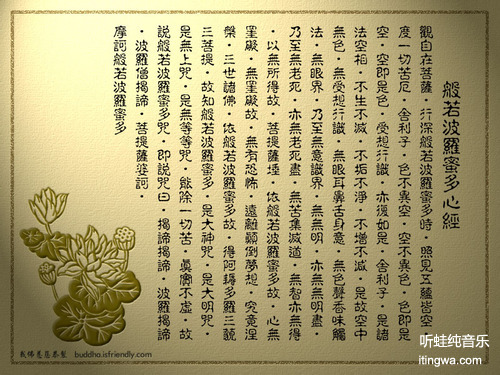 般若波羅蜜多心經
觀自在菩薩‧行深般若波羅蜜多時‧照見五蘊皆空‧
度一切苦厄‧舍利子‧色不異空‧空不異色‧色即是
空‧空即是色‧受想行識‧亦復如是‧舍利子‧是諸
法空相‧不生不滅‧不垢不淨‧不增不減‧是故空中
無色‧無受想行識‧無眼耳鼻舌身意‧無色聲香味觸
法‧無眼界‧乃至無意識界‧無無明‧亦無無明盡‧
乃至無老死‧亦無老死盡‧無苦集滅道‧無智亦無得
‧以無所得故‧菩提薩埵‧依般若波羅蜜多故‧心無
罣礙‧無罣礙故‧無有恐怖‧遠離顛倒夢想‧究竟涅
槃‧三世諸佛‧依般若波羅蜜多故‧得阿耨多羅三藐
三菩提‧故知般若波羅蜜多‧是大神咒‧是大明咒‧
是無上咒‧是無等等咒‧能除一切苦‧真實不虛‧故
說般若波羅蜜多咒‧即說咒曰‧揭諦揭諦‧波羅揭諦
‧波羅僧揭諦‧菩提薩婆訶‧
摩訶般若波羅蜜多
我佛慈悲恭製 buddha.isfriendly.com
听蛙纯音乐
itingwa.com